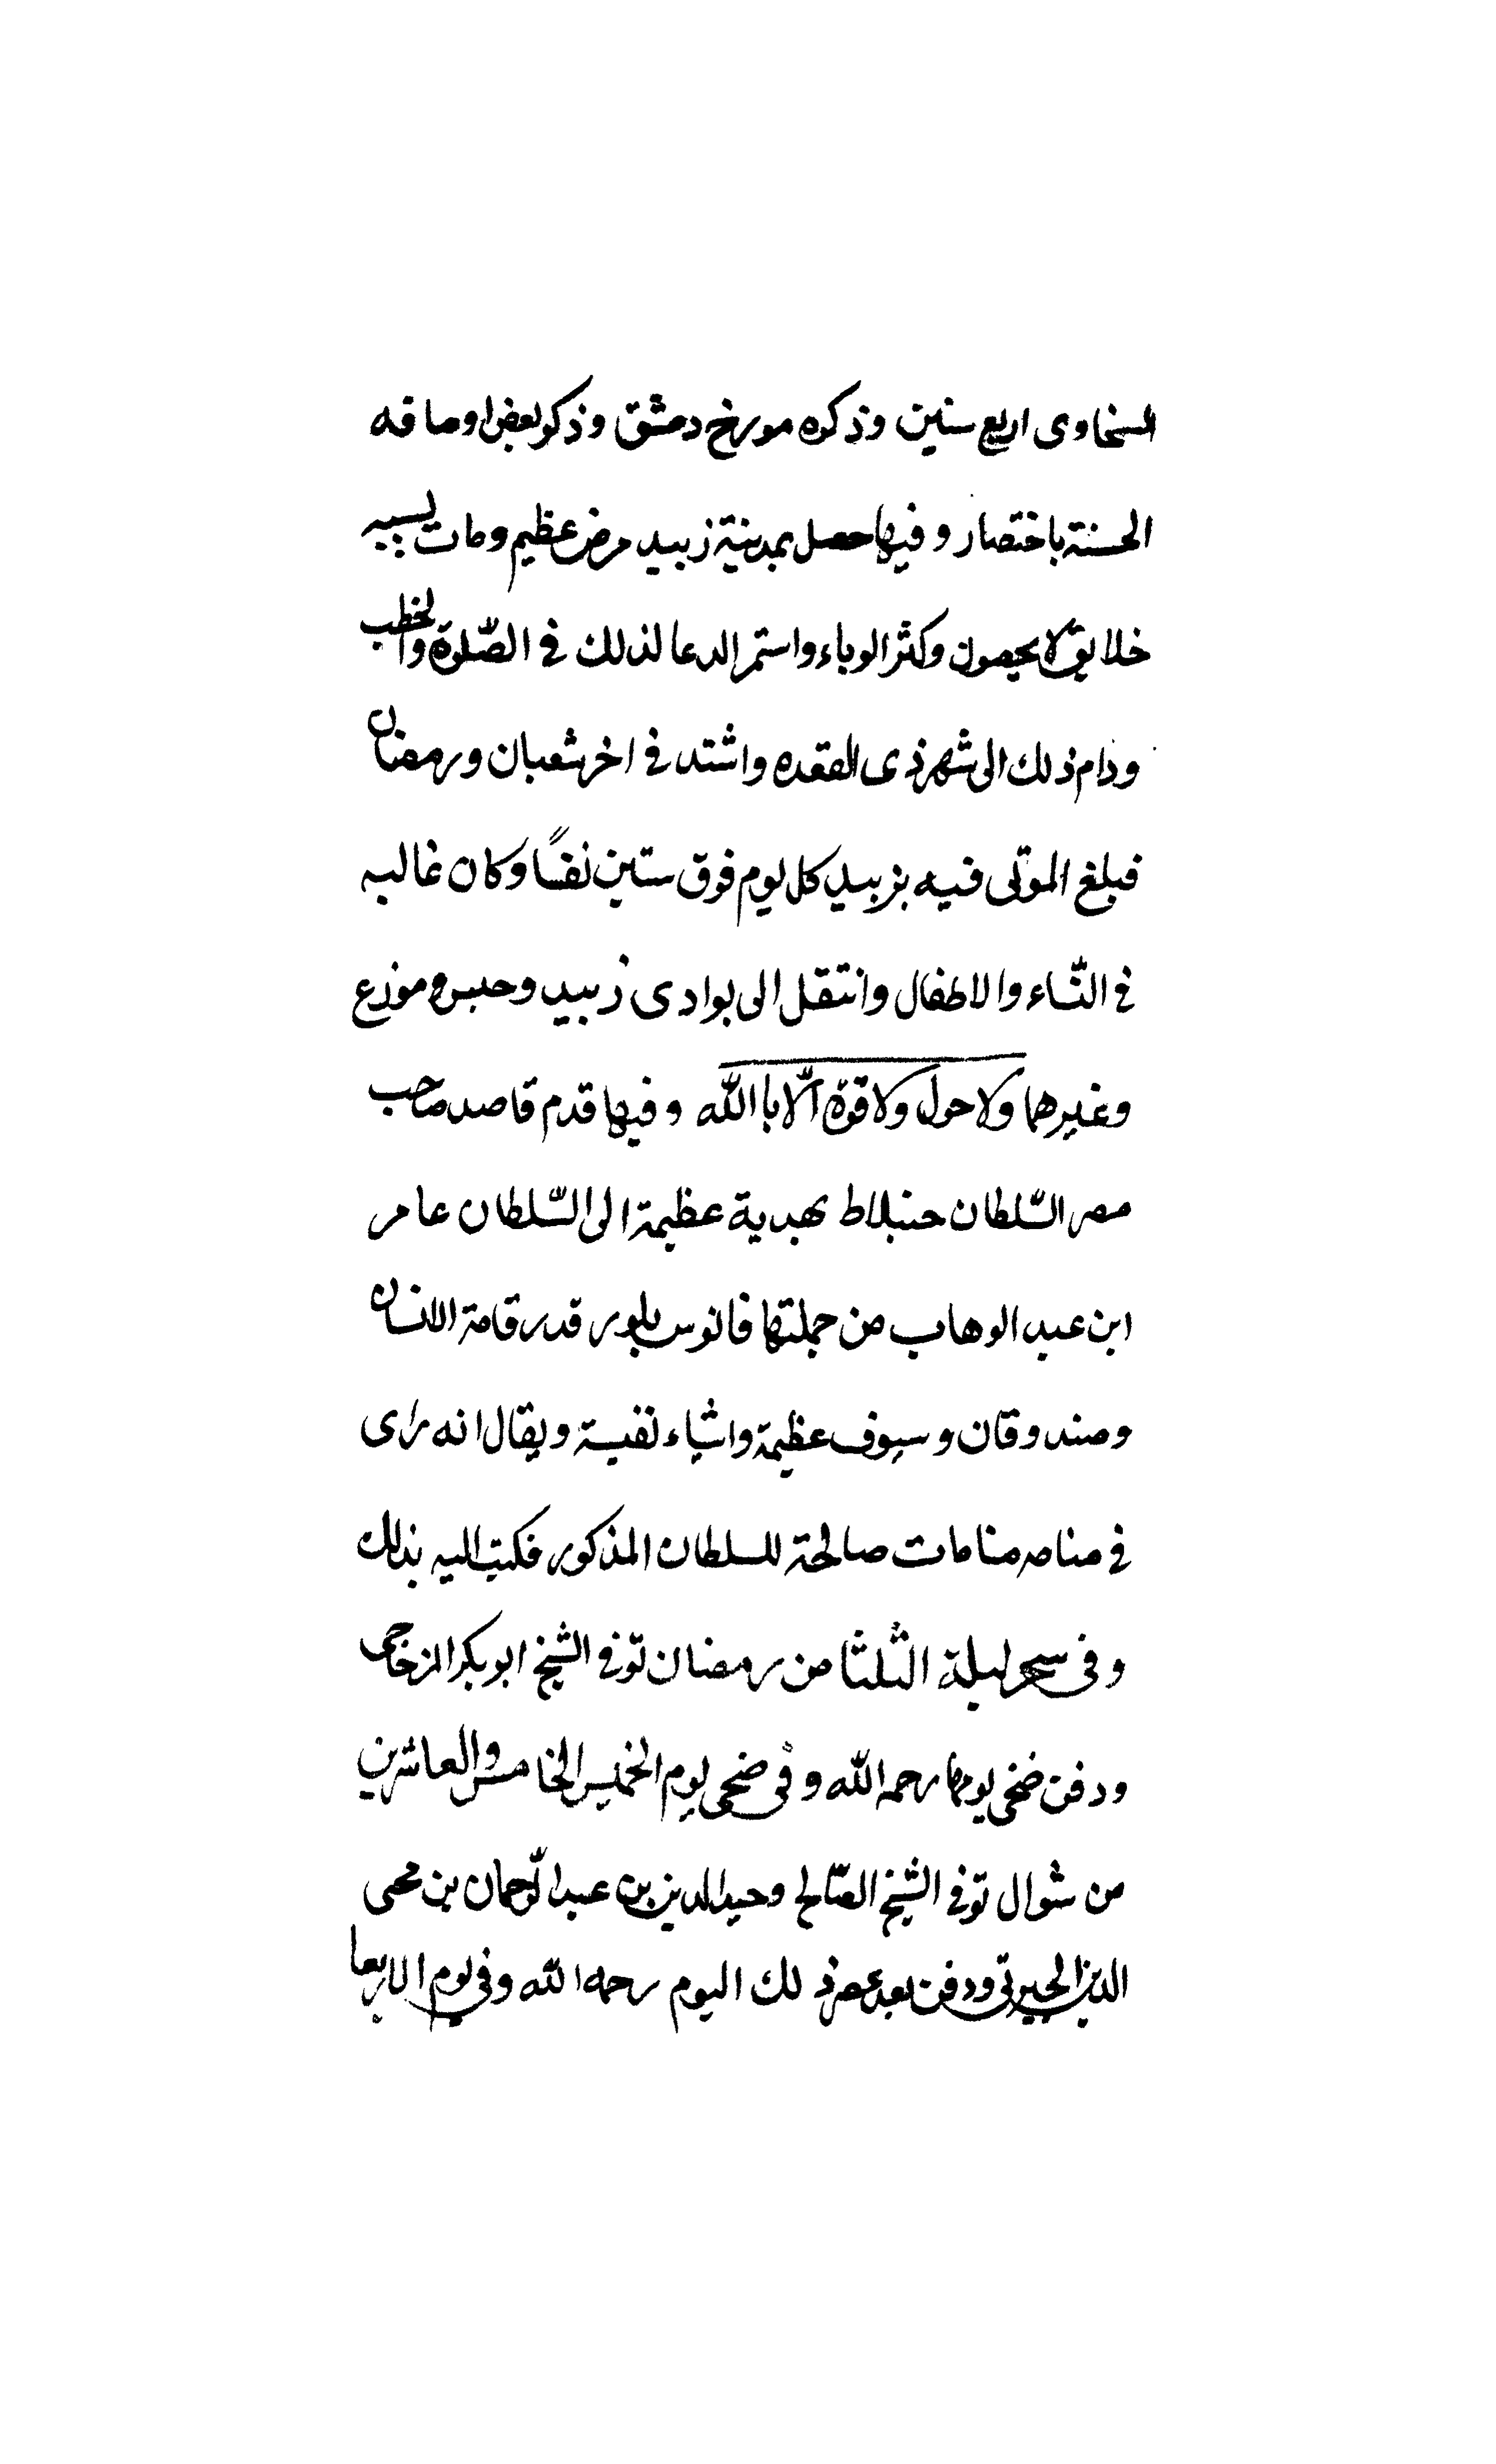 السخاوى اربع سنين وذكره مورخ دمشق وذكر بعض اوصافه
الحسنة باختصار وفيها حصل بمدينة زبيد مرض عظيم ومات بسببه
خلايق لا يحصون وكثر الوباء واستمر الدعا لذلك في الصّلوة والخطب
ودام ذلك الى شهر ذى القعده واشتد في اخر شعبان ورمضان
فبلغ الموتى فيه بزبيد كل يوم فوق ستين نفسًا وكان غالبه
في النّساء والاطفال وانتقل الى بوادى زبيد وحيس وموزع
وغيرهما ولا حول ولا قوة الّا باالله وفيها قدم قاصد صاحب
مصر السّلطان جنبلاط بهدية عظيمة الى السّلطان عامر
ابن عبد الوهاب من جملتها فانوس بلور قدر قامة الانسان
وصندوقان وسيوف عظيمة واشياء نفيسة ويقال انه راى
في منامه منامات صالحة للسلطان المذكور فكتب اليه بذلك
وفى سحر ليلة الثلثا من رمضان توّفي الشيخ ابو بكر المزجاجى
ودفن ضحى يومها رحمه الله وفى ضحى يوم الخميس الخامس والعاشرين
من شوال توفي الشيخ الصّالح وحيد الدين بن عبد الرّحمان بن محى
الدين الجبرتى ودفن بعد عصر ذلك اليوم رحمه الله وفي يوم الاربعا